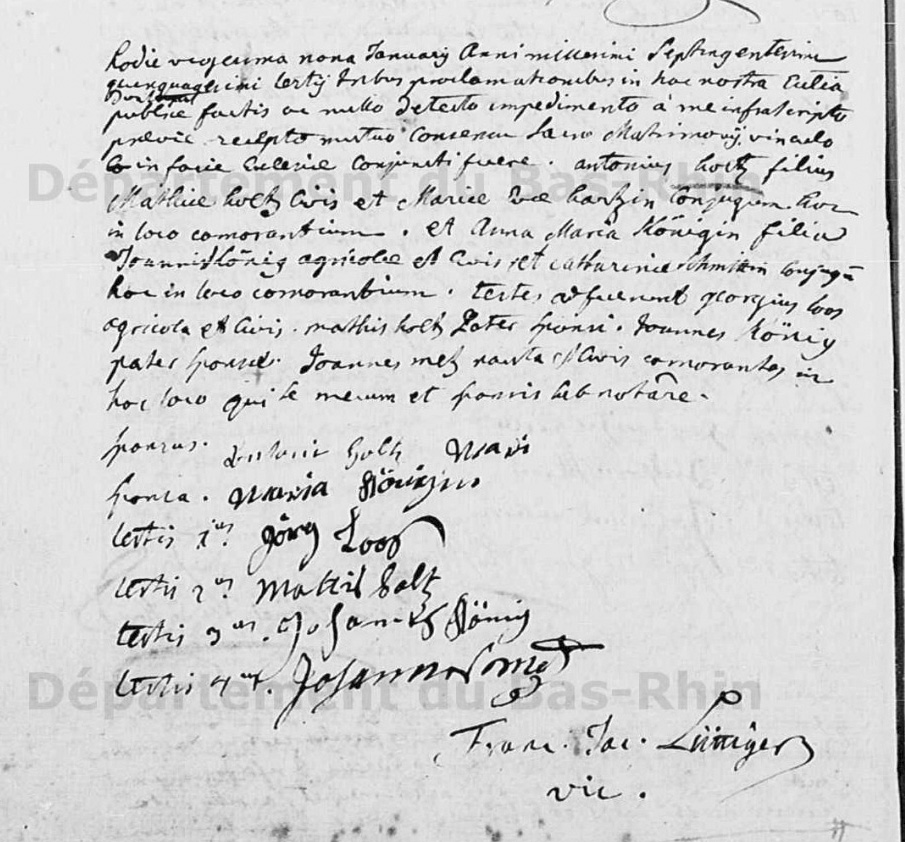 hodie vigesima nona January Anni millesimi Septingentesimi
quinquagesimi tertij tribus proclamationibus in hac nostra Eclia
publice factis ac nullo detecto impedimento à me infrascripto
prævie recepto mutuo Consensu Sacro Matrimonij vinculo
in facie Ecclesiæ Conjuncti fuere. antonius holtz filius
Mathiæ holtz Civis et Mariæ hartzin Conjugum hoc
in loco comorantium. et Anna Maria Königin filia
Joannis König agricolæ et Civis et catharinæ Schmittin conjugū
hoc in loco comorantium. testes adfuerunt georgius loos
agricola et Civis. mathis holtz Pater sponsi. Joannes König
pater sponsæ. Joannes metz nauta et Civis comorantes in
hoc loco qui se mecum et sponsis
sponsus. Antoni holtz
sponsa. Maria Königin
testis 1us Jörg Loos
testis 2us Mattis holtz
testis 3us. Johannes König
testis 4us. Johannes metz
Franc. Jac.
vic.
Département du Bas-Rhin
Département du Bas-Rhin